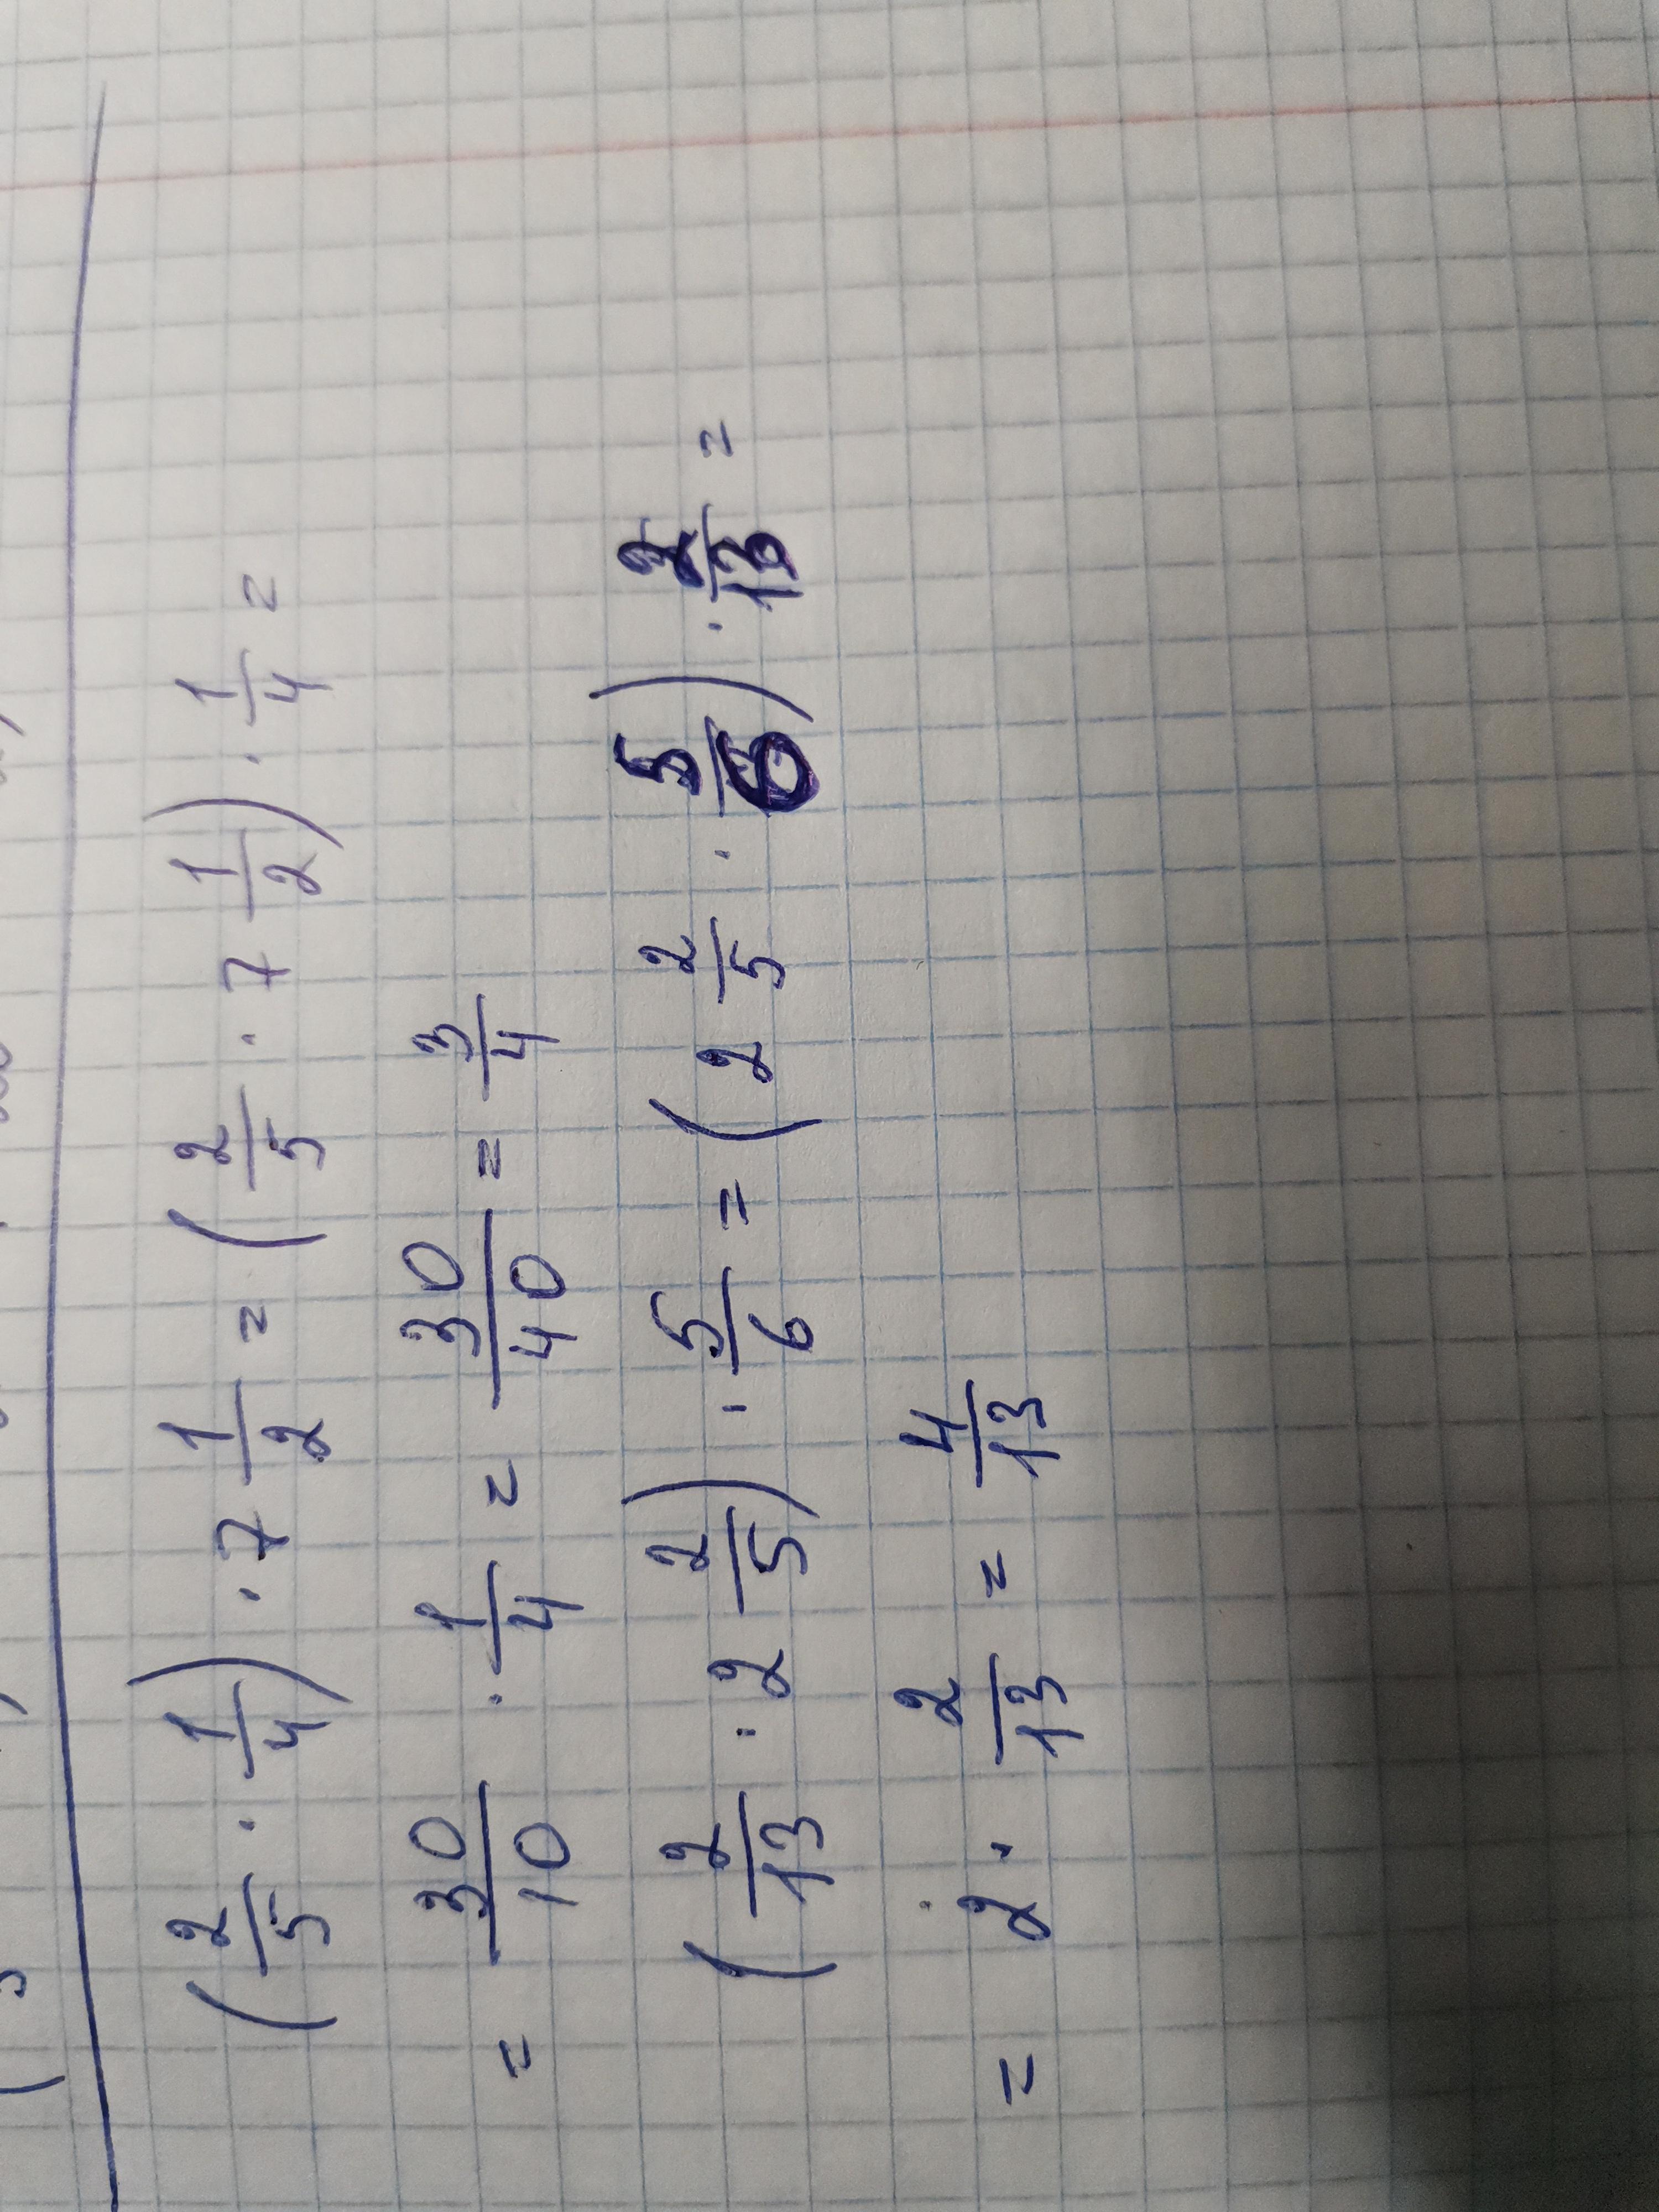 (2/5 · 1/4) · 7 1/2 = (2/5 · 7 1/2) · 1/4 =
= 30/10 · 1/4 = 30/40 = 3/4
(2/13 · 2 2/5) · 5/6 = (2 2/5 · 5/6) · 2/13 =
= 2 · 2/13 = 4/13